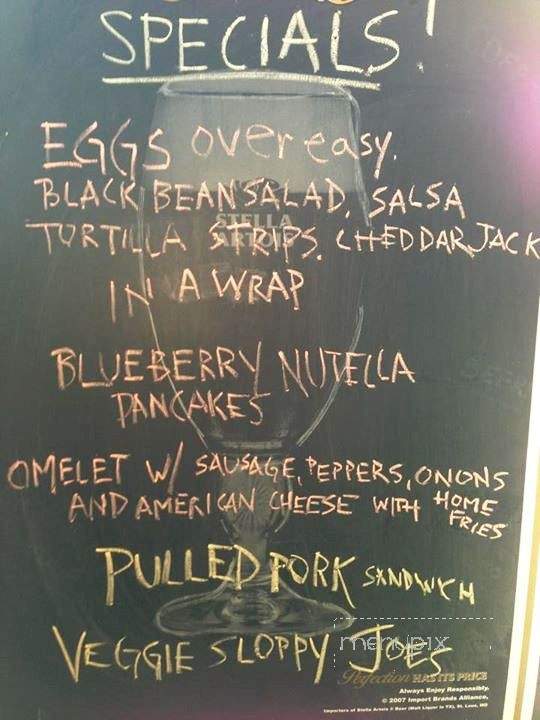 SPECIALS!
EGGS over easy.
BLACK BEAN SALAD, SALSA
STELLA
ARTOIS
TORTILLA STRIPS, CHEDDAR JACK
IN A WRAP
BLUEBERRY NUTELLA
PANCAKES
OMELET W/ SAUSAGE, PEPPERS, ONONS
AND AMERICAN CHEESE WITH HOME
FRIES
PULLED PORK SANDWICH
VEGGIE SLOPPY JOES
menupix
Perfection HAS ITS PRICE
Always Enjoy Responsibly.
© 2007 Import Brands Alliance,
Importers of Stella Artois ® Beer (Malt Liquor in TX), St. Louis, MO